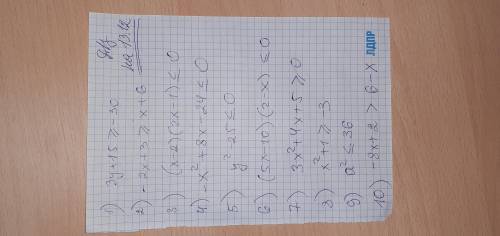 Д/з
на 13.12
1) 3y+15 ≥ -30
2) -2x+3 ≥ x+6
3) (x-2)(2x-1) ≤ 0
4) -x²+8x-24 ≤ 0
5) y²-25 ≤ 0
6) (5x-10)(2-x) ≤ 0
7) 3x²+4x+5 ≥ 0
8) x²+1 ≥ -3
9) a² ≤ 36
10) -8x+2 > 6-x
ЛДПР